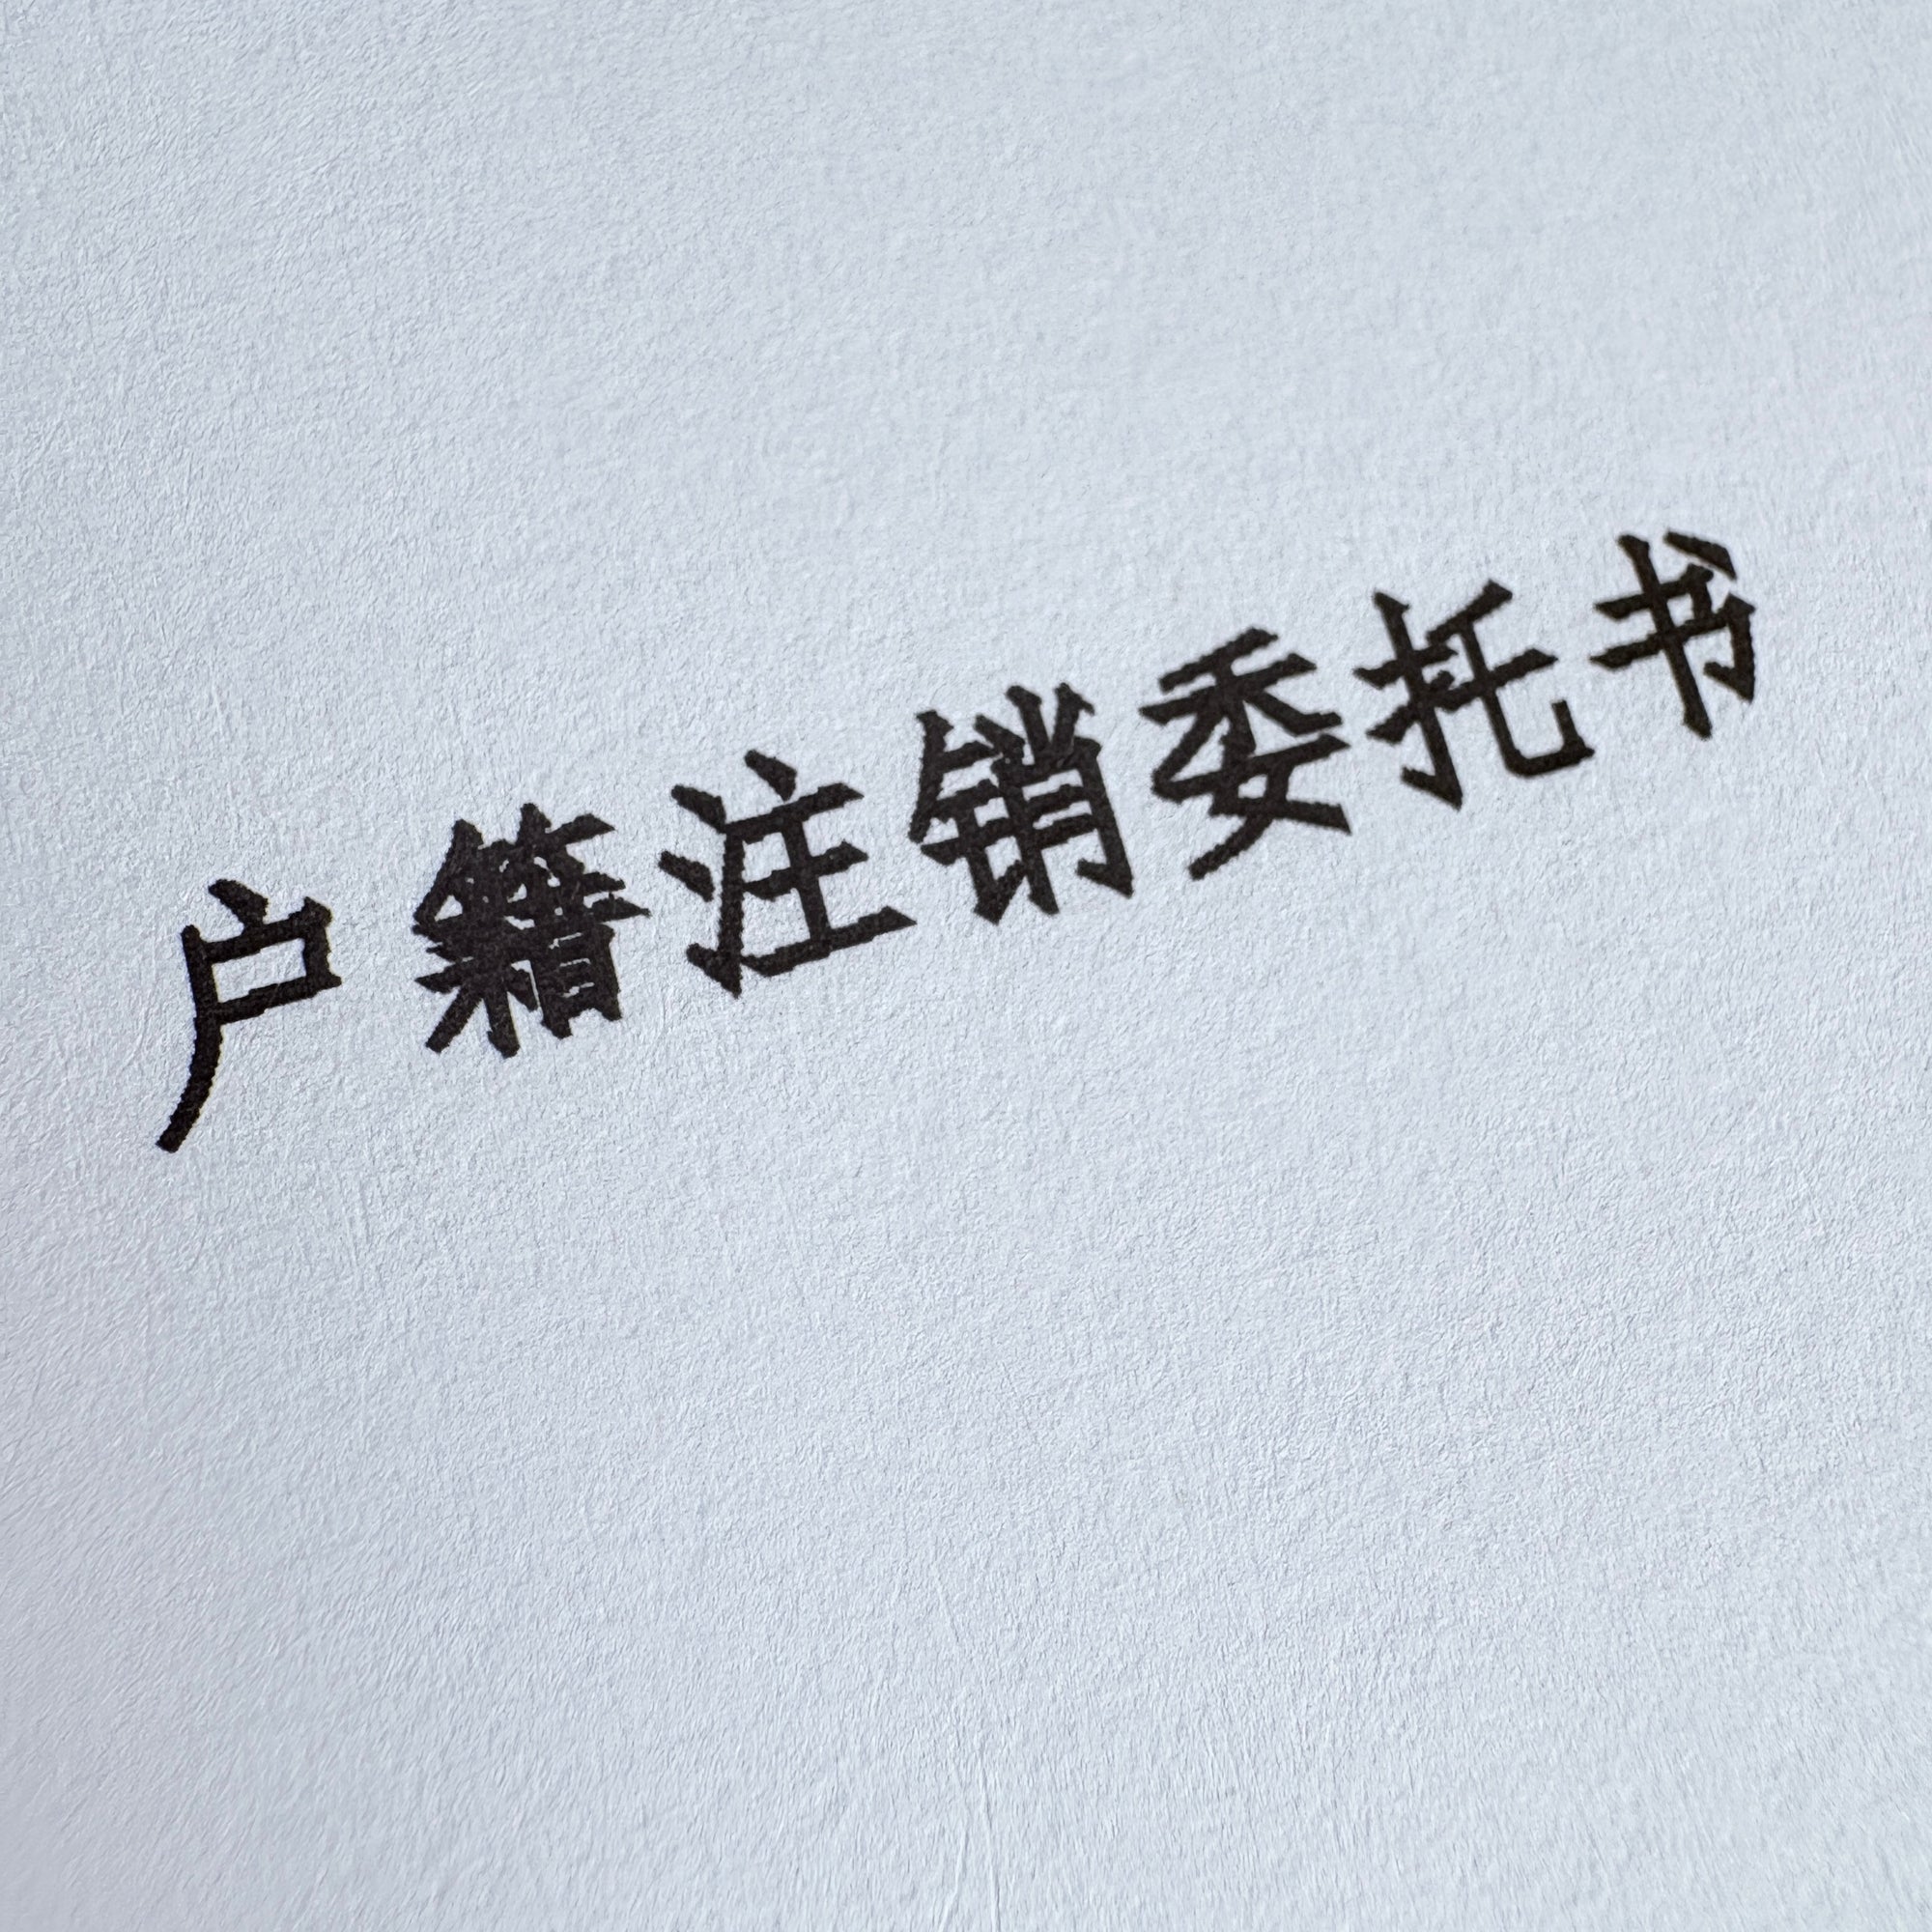 户籍注销委托书